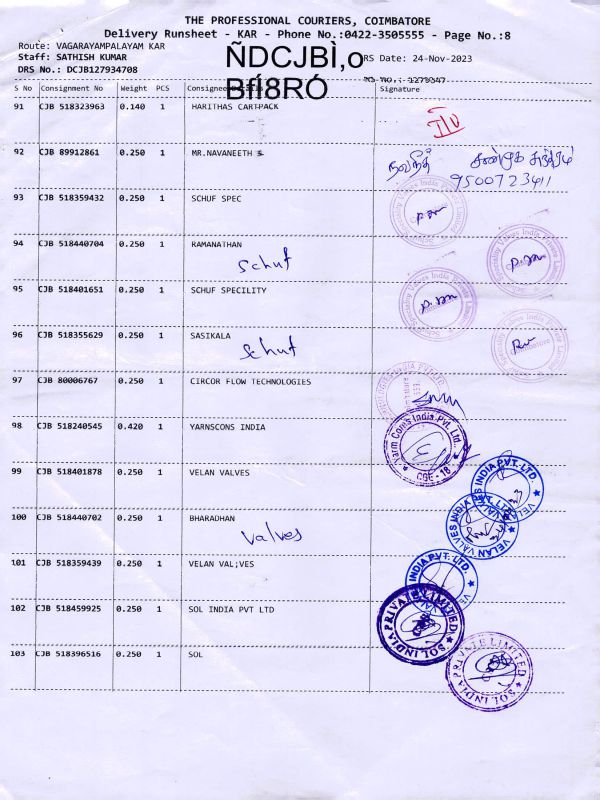 THE PROFESSIONAL COURIERS, COIMBATORE
Delivery Runsheet - KAR - Phone No.:0422-3505555 - Page No.:8
Route: VAGARAYAMPALAYAM KAR
Staff: SATHISH KUMAR
RS Date: 24-Nov-2023
DRS No.: DCJB127934708
ÑDCJBÌ,o
BfI8RÓ
S No Consignment No Weight PCS Consignee Details Signature
91 CJB 518323963 0.140 1 HARITHAS CARTPACK
92 CJB 89912861 0.250 1 MR.NAVANEETH S நவநீத் சண்முக சுந்தரம்
9500723411
93 CJB 518359432 0.250 1 SCHUF SPEC
94 CJB 518440704 0.250 1 RAMANATHAN
Schuf
95 CJB 518401651 0.250 1 SCHUF SPECILITY
96 CJB 518355629 0.250 1 SASIKALA
Schuf
97 CJB 80006767 0.250 1 CIRCOR FLOW TECHNOLOGIES
98 CJB 518240545 0.420 1 YARNSCONS INDIA
CBE - 18
99 CJB 518401878 0.250 1 VELAN VALVES
VELAN VALVES INDIA PVT. LTD.
100 CJB 518440702 0.250 1 BHARADHAN
Valves
VELAN VALVES INDIA PVT. LTD.
101 CJB 518359439 0.250 1 VELAN VAL;VES
INDIA PVT. LTD.
102 CJB 518459925 0.250 1 SOL INDIA PVT LTD
SOL INDIA PRIVATE LIMITED
103 CJB 518396516 0.250 1 SOL
SOL INDIA PRIVATE LIMITED